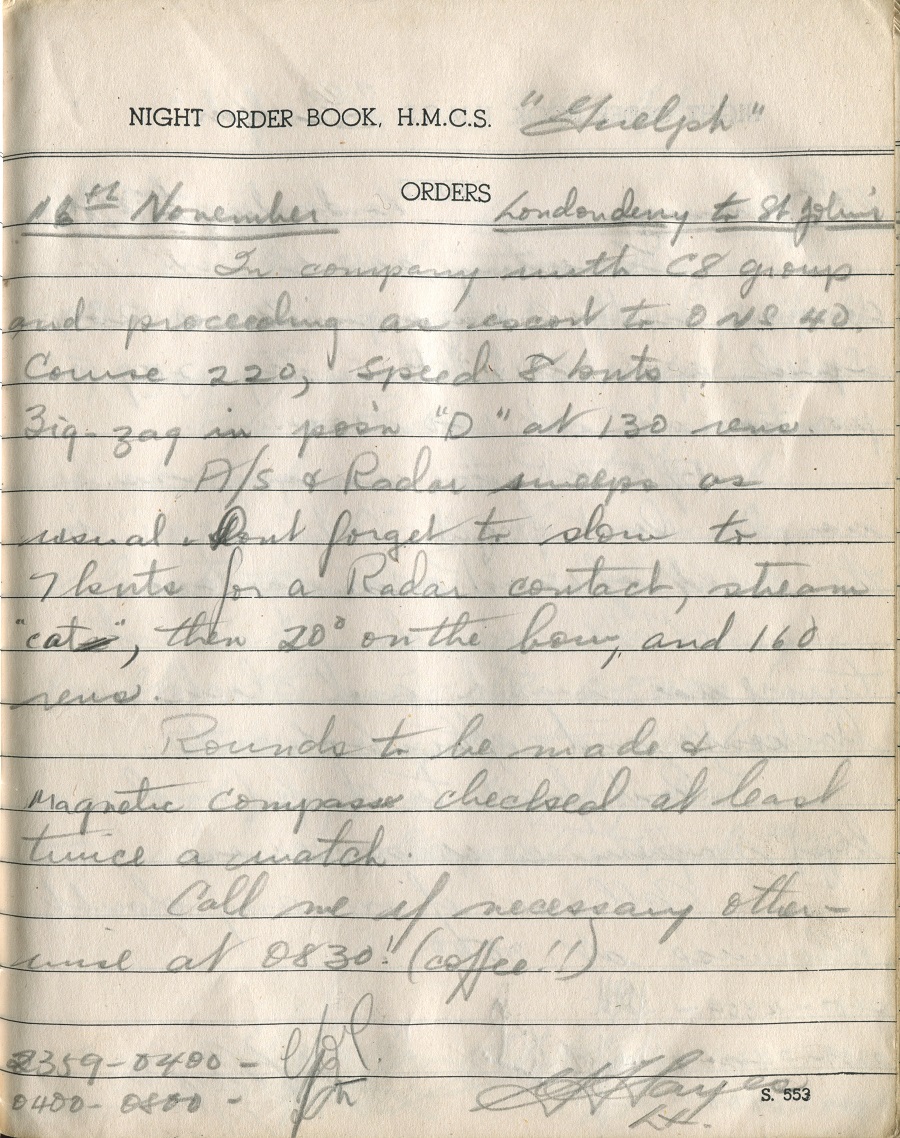 NIGHT ORDER BOOK, H.M.C.S. "Guelph"
ORDERS
16th November Londonderry to St John's
In company with C8 group
and proceeding as escort to ONS 40.
Course 220, speed 8 knts.
Zig-zag in pos'n "D" at 130 revs.
A/S & Radar sweeps as
usual. Dont forget to slow to
7 knts for a Radar contact, stream
"cat", then 20° on the bow, and 160
revs.
Rounds to be made &
Magnetic compass checked at least
twice a watch.
Call me if necessary other-
wise at 0830! (coffee!!)
2359-0400 -
0400-0800 -
Hayes
Lt.
S. 553